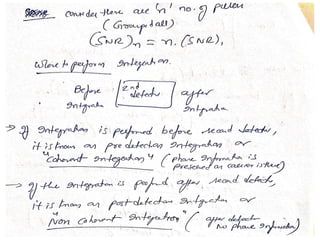 consider there are 'n' no. of pulses
(Groups of all)
(SNR)n = n. (SNR)1
where to perform Integration.
Before Integration
2nd detector
after Integration
→ If Integration is performed before second detector,
it is known as predetection Integration or
"Coherent Integration" (phase Information is
preserved
→ If the Integration is after second detector,
it is known as postdetection Integration or
"Non Coherent Integration" (after detector
no phase Information)